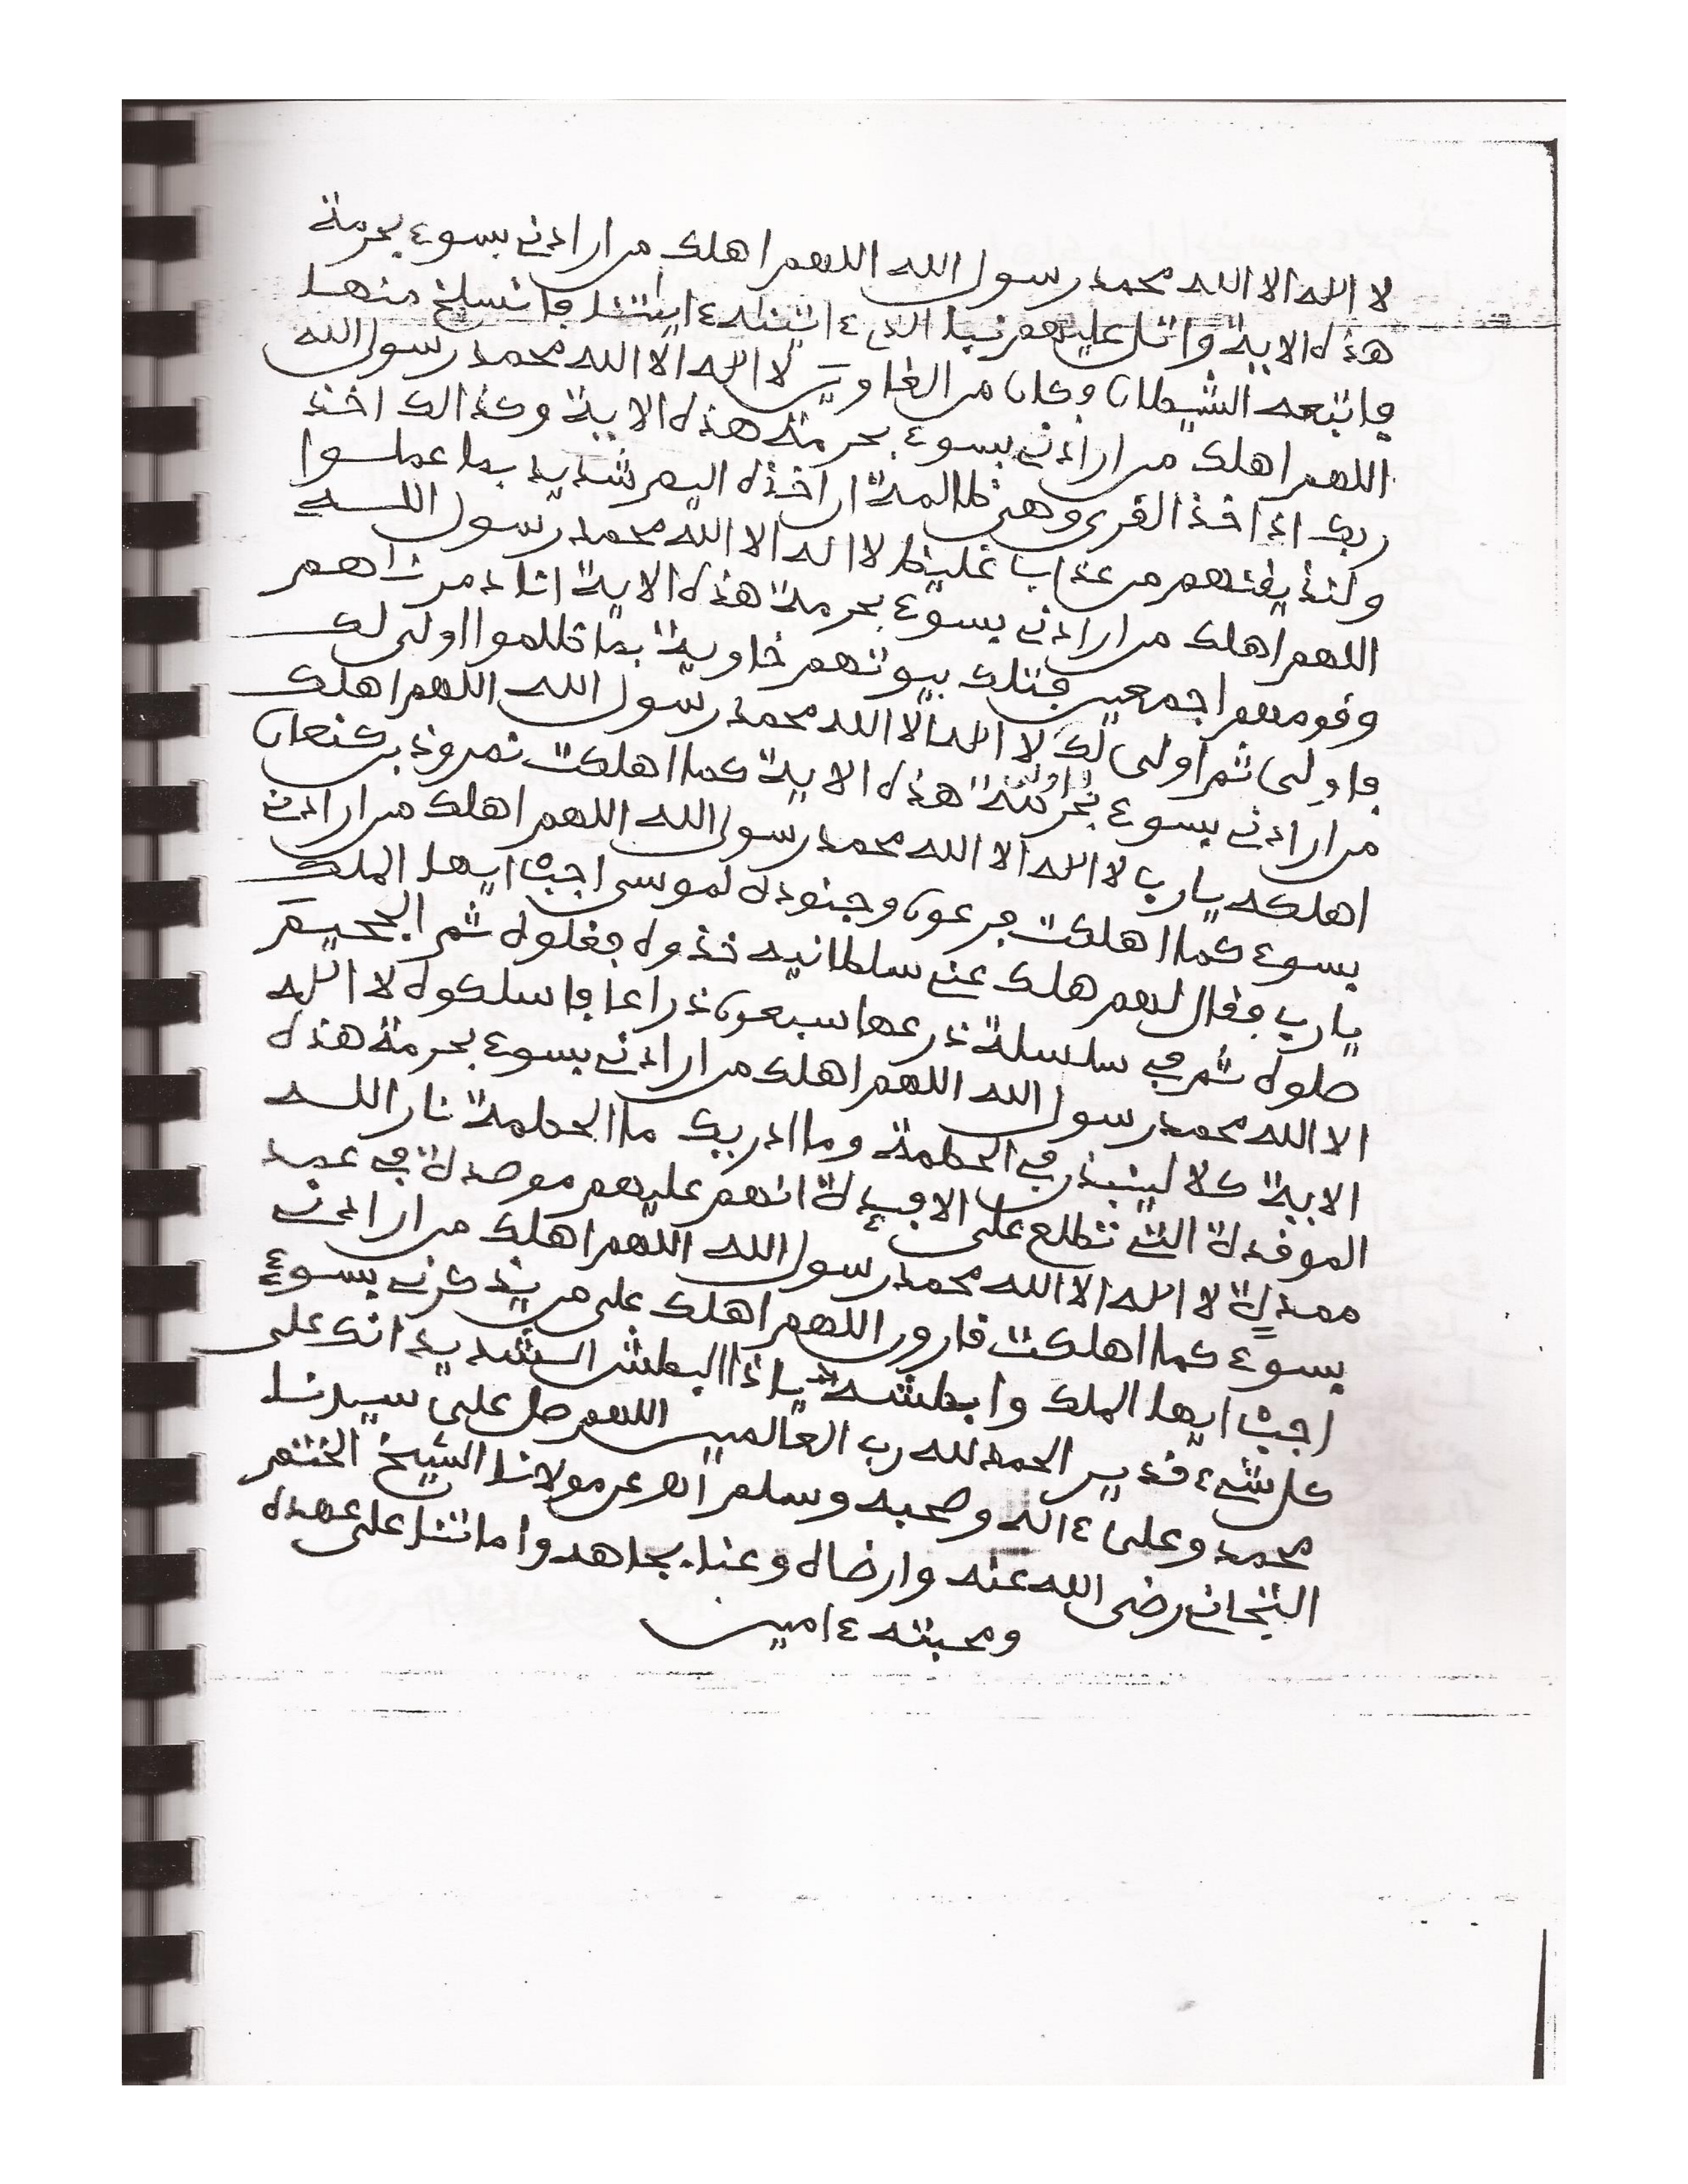 لا اله الا الله محمد رسول الله اللهم اهلك من ارادني بسوء بحرمة
هذه الاية واتل عليهم نبا الذي ءاتينه ءايتنا فانسلخ منها
فاتبعه الشيطان وكان من الغاوين لا اله الا الله محمد رسول الله
اللهم اهلك من ارادني بسوء بحرمة هذه الاية وكذالك اخذ
ربك اذا اخذ القرى وهي ظالمة ان اخذه اليم شديد بما عملوا
ولنذيقنهم من عذاب غليظ لا اله الا الله محمد رسول الله
اللهم اهلك من ارادني بسوء بحرمة هذه الاية انا دمرناهم
وقومهم اجمعين فتلك بيوتهم خاوية بما ظلموا اولى لك
فاولى ثم اولى لك لا اله الا الله محمد رسول الله اللهم اهلك
من ارادني بسوء بحرمة هذه الاية كما اهلكت نمروذ بن كنعان
اهلكه يا رب لا اله الا الله محمد رسول الله اللهم اهلك من ارادني
بسوء كما اهلكت فرعون وجنوده لموسى اجب ايها الملك
يا رب فقال لهم هلك عني سلطانيه خذوه فغلوه ثم الجحيم
صلوه ثم في سلسلة ذرعها سبعون ذراعا فاسلكوه لا اله
الا الله محمد رسول الله اللهم اهلك من ارادني بسوء بحرمة هذه
الاية كلا لينبذن في الحطمة وما ادريك ما الحطمة نار الله
الموقدة التي تطلع على الافـدة انهم عليهم موصدة في عمد
ممددة لا اله الا الله محمد رسول الله اللهم اهلك من ارادني
بسوء كما اهلكت قارون اللهم اهلك على من يذكرني بسوء
اجب ايها الملك وابطشه يا ذا البطش الشديد انك على
كل شيء قدير الحمد لله رب العالمين اللهم صل على سيدنا
محمد وعلى ءاله وصحبه وسلم عن مولانا الشيخ الختم
التجاني رضى الله عنه وارضاه وعنا بجاهه واماتنا على عهده
ومحبته ءامين